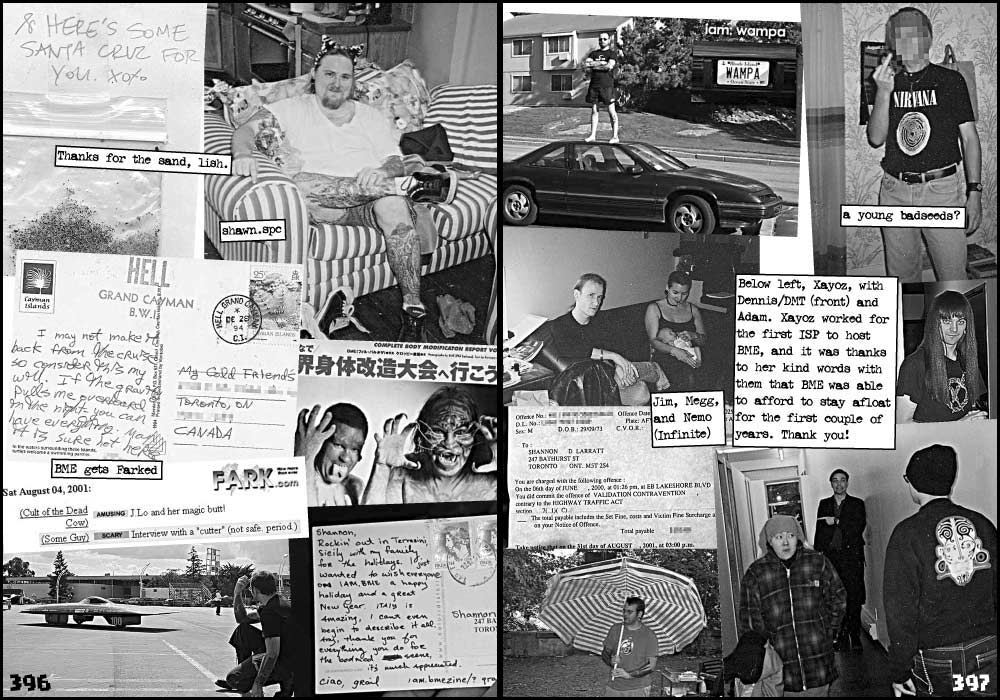 & HERE'S SOME
SANTA CRUZ FOR
YOU. XOXO
Thanks for the sand, lish.
shawn.spc
Cayman
Islands
HELL
GRAND CAYMAN
B.W.I.
25¢
HELL GRAND CAYMAN
DE 28
94
C.I.
I may not make it
back from the cruise
so consider this my
will. If the
pulls me
in the night you can
have everything.
It is sure hot here
My Gold Friends
TORONTO, ON
CANADA
COMPLETE BODY MODIFICATION REPORT VO
界身体改造大会へ行こう
BME gets Farked
FARK.com
Sat August 04, 2001:
(Cult of the Dead
Cow)
AMUSING
J.Lo and her magic butt!
(Some Guy)
SCARY
Interview with a "cutter" (not safe. period.)
100
Shannon,
Rockin' out in Terrasini
Sicily with my family
for the holidays. I just
wanted to wish everyone
on IAM.BME a happy
holiday and a great
New Year. ITALY is
Amazing, I can't even
begin to describe it all.
thank you for
everything you do for
the bodmod scene,
it's much appreciated.
Ciao, grail
iam.bmezine/? gra
Shannon
247 BA
TORO
396
iam: wampa
Rhode Island
WAMPA
Ocean State
NIRVANA
a young badseeds?
Below left, Xayoz, with
Dennis/DMT (front) and
Adam. Xayoz worked for
the first ISP to host
BME, and it was thanks
to her kind words with
them that BME was able
to afford to stay afloat
for the first couple of
years. Thank you!
Jim, Megg,
and Nemo
(Infinite)
Offence No.:
Offence Date
D.L. No.:
Plate: AF
Sex: M
D.O.B.: 29/09/73
C.V.O.R.:
To :
SHANNON D LARRATT
247 BATHURST ST
TORONTO ONT. M5T 2S4
You are charged with the following offence :
On the 06th day of JUNE , 2000, at 01:26 pm, at EB LAKESHORE BLVD
You did commit the offence of VALIDATION CONTRAVENTION
contrary to the HIGHWAY TRAFFIC ACT
section
The total payable includes the Set Fine, costs and Victim Fine Surcharge a
on your Notice of Offence.
Total payable
on the 31st day of AUGUST , 2001, at 03:00 p.m.
397